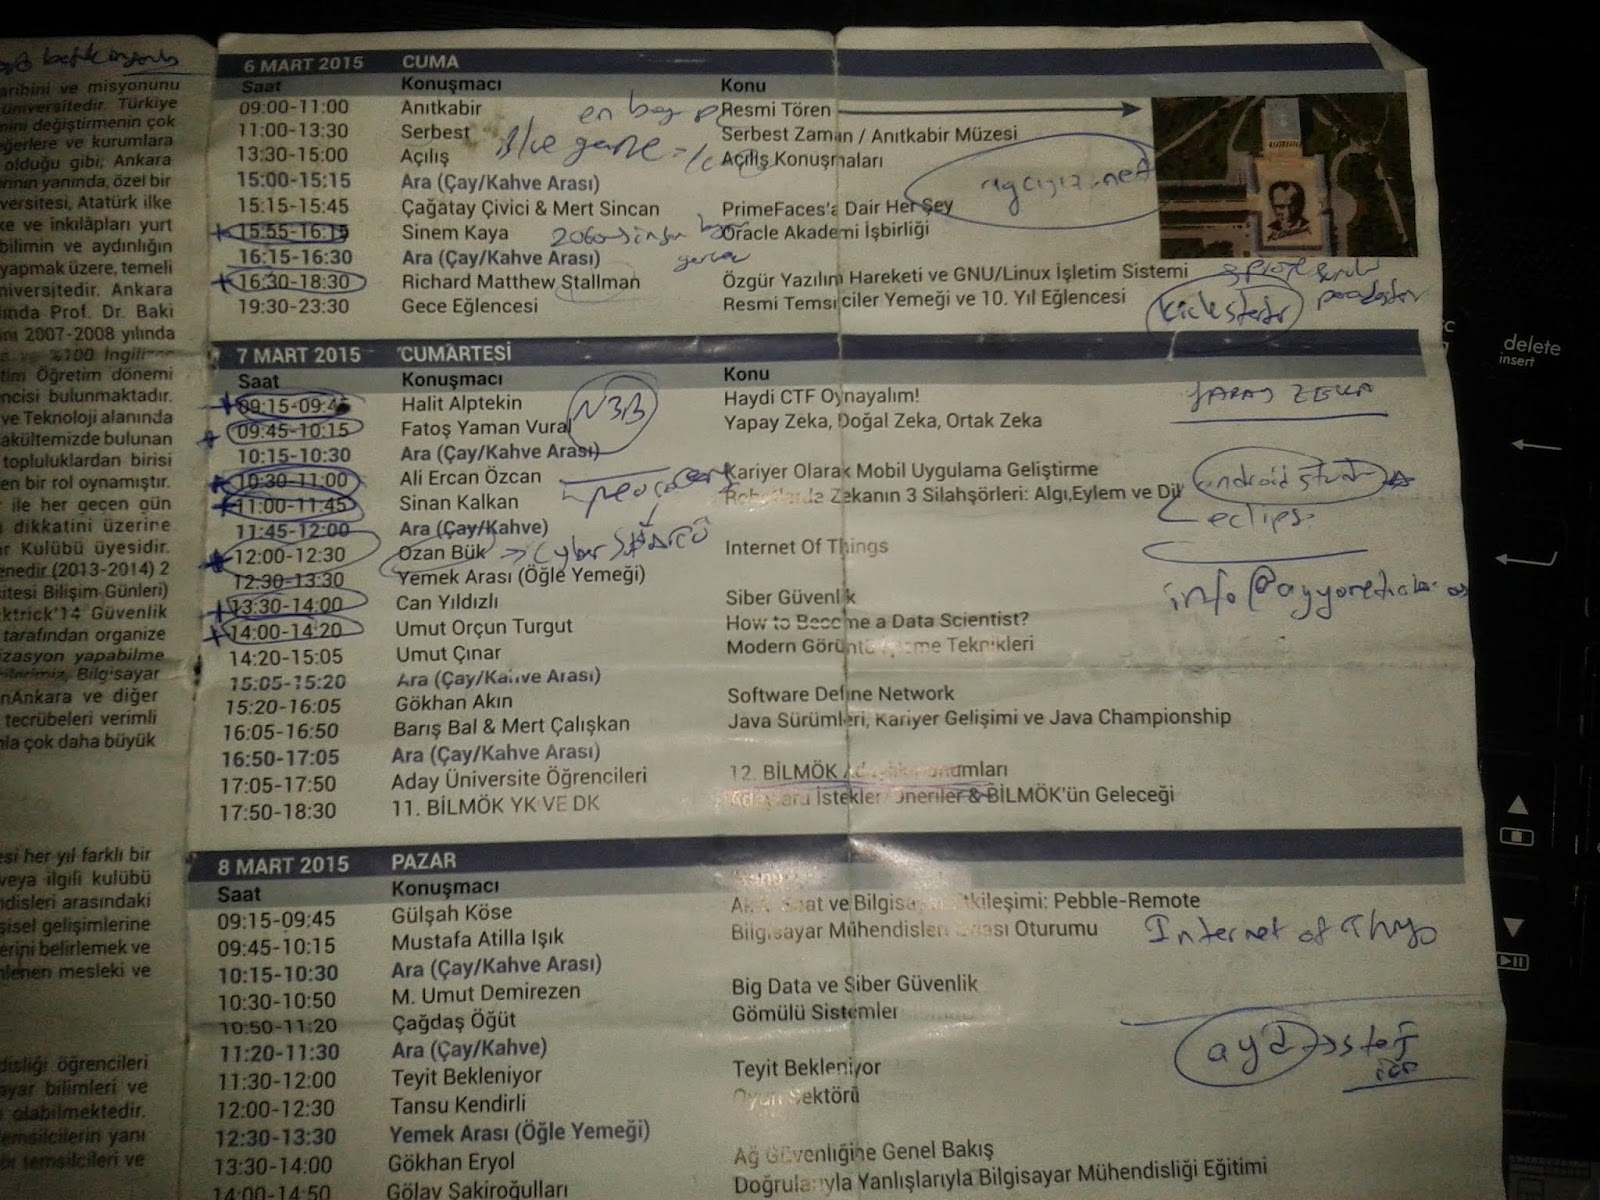 arihini ve misyonunu
üniversitedir. Türkiye
mini değiştirmenin çok
eğerlere ve kurumlara
olduğu gibi, Ankara
ırının yanında, özel bir
versitesi, Atatürk ilke
ke ve inkılâpları yurt
bilimin ve aydınlığın
yapmak üzere, temeli
niversitedir. Ankara
ımda Prof. Dr. Baki
im 2007-2008 yılında
%100 İngilizce
tim Öğretim dönemi
encisi bulunmaktadır.
ve Teknoloji alanında
akültemizde bulunan
topluluklardan birisi
en bir rol oynamıştır.
ile her geçen gün
dikkatini üzerine
r Kulübü üyesidir.
enedir (2013-2014) 2
sitesi Bilişim Günleri)
ktrick'14 Güvenlik
tarafından organize
izasyon yapabilme
Bilgisayar
nAnkara ve diğer
tecrübeleri verimli
la çok daha büyük
esi her yıl farklı bir
veya ilgili kulübü
disleri arasındaki
şisel gelişimlerine
erini belirlemek ve
nlenen mesleki ve
disliği öğrencileri
ayar bilimleri ve
olabilmektedir.
emsilcilerin yanı
ör temsilcileri ve
6 MART 2015 CUMA
Saat Konuşmacı Konu
09:00-11:00 Anıtkabir Resmi Tören
11:00-13:30 Serbest Serbest Zaman / Anıtkabir Müzesi
13:30-15:00 Açılış Açılış Konuşmaları
15:00-15:15 Ara (Çay/Kahve Arası)
15:15-15:45 Çağatay Çivici & Mert Sincan PrimeFaces'a Dair Her Şey
15:55-16:15 Sinem Kaya Oracle Akademi İşbirliği
16:15-16:30 Ara (Çay/Kahve Arası)
16:30-18:30 Richard Matthew Stallman Özgür Yazılım Hareketi ve GNU/Linux İşletim Sistemi
19:30-23:30 Gece Eğlencesi Resmi Temsilciler Yemeği ve 10. Yıl Eğlencesi
kickstarter
7 MART 2015 CUMARTESİ
Saat Konuşmacı Konu
09:15-09:45 Halit Alptekin Haydi CTF Oynayalım!
09:45-10:15 Fatoş Yaman Vural Yapay Zeka, Doğal Zeka, Ortak Zeka
10:15-10:30 Ara (Çay/Kahve Arası)
10:30-11:00 Ali Ercan Özcan Kariyer Olarak Mobil Uygulama Geliştirme
11:00-11:45 Sinan Kalkan Robotlarda Zekanın 3 Silahşörleri: Algı,Eylem ve Dil
11:45-12:00 Ara (Çay/Kahve)
12:00-12:30 Ozan Bük Internet Of Things
12:30-13:30 Yemek Arası (Öğle Yemeği)
13:30-14:00 Can Yıldızlı Siber Güvenlik
14:00-14:20 Umut Orçun Turgut How to Become a Data Scientist?
14:20-15:05 Umut Çınar Modern Görüntü İşleme Teknikleri
15:05-15:20 Ara (Çay/Kahve Arası)
15:20-16:05 Gökhan Akın Software Define Network
16:05-16:50 Barış Bal & Mert Çalışkan Java Sürümleri, Kariyer Gelişimi ve Java Championship
16:50-17:05 Ara (Çay/Kahve Arası)
17:05-17:50 Aday Üniversite Öğrencileri 12. BİLMÖK
17:50-18:30 11. BİLMÖK YK VE DK İstekler/Öneriler & BİLMÖK'ün Geleceği
ZEKA
android studio
eclips
8 MART 2015 PAZAR
Saat Konuşmacı
09:15-09:45 Gülşah Köse Akıllı Saat ve Bilgisayar Etkileşimi: Pebble-Remote
09:45-10:15 Mustafa Atilla Işık Bilgisayar Mühendisleri Odası Oturumu
10:15-10:30 Ara (Çay/Kahve Arası)
10:30-10:50 M. Umut Demirezen Big Data ve Siber Güvenlik
10:50-11:20 Çağdaş Öğüt Gömülü Sistemler
11:20-11:30 Ara (Çay/Kahve)
11:30-12:00 Teyit Bekleniyor Teyit Bekleniyor
12:00-12:30 Tansu Kendirli Oyun Sektörü
12:30-13:30 Yemek Arası (Öğle Yemeği)
13:30-14:00 Gökhan Eryol Ağ Güvenliğine Genel Bakış
14:00-14:50 Gölay Şakiroğulları Doğrularıyla Yanlışlarıyla Bilgisayar Mühendisliği Eğitimi
Internet of Things
delete
insert